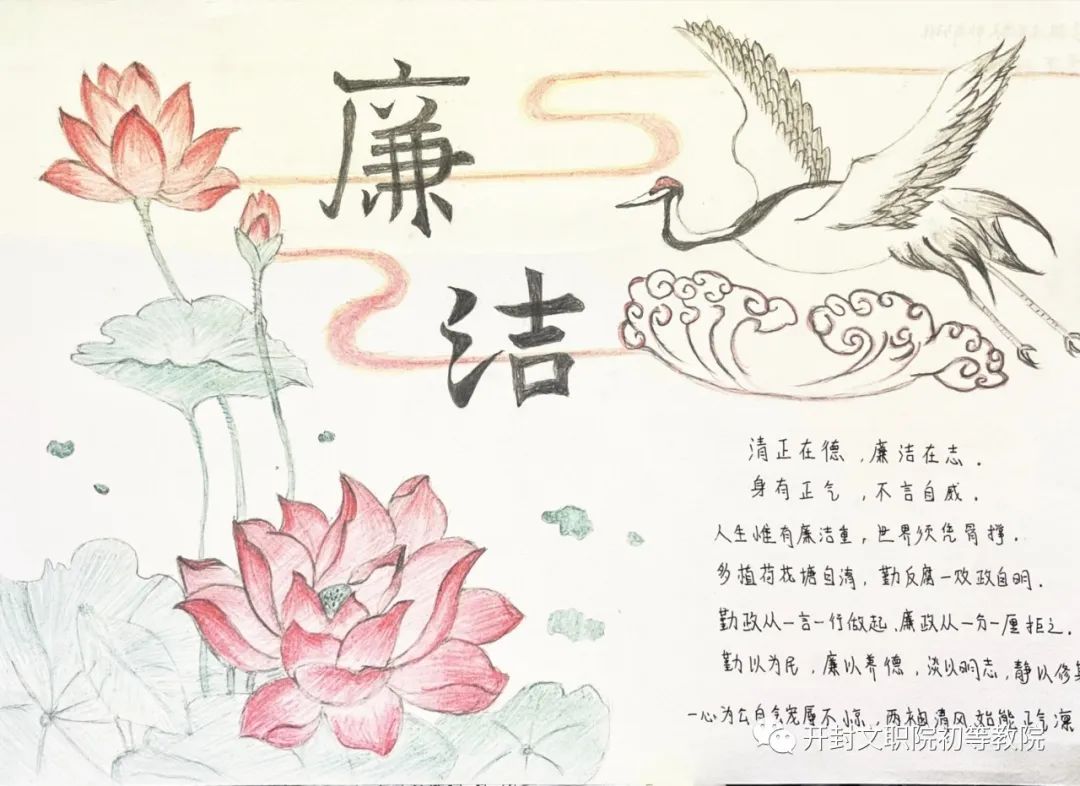 廉
洁
清正在德,廉洁在志.
身有正气,不言自威.
人生惟有廉洁重,世界须凭骨撑.
多植荷花塘自清,勤反腐一效政自明.
勤政从一言一行做起,廉政从一分一厘拒之.
勤以为民,廉以养德,淡以明志,静以修
一心为公自宠辱不惊,两袖清风始能正气凛
开封文职院初等教院